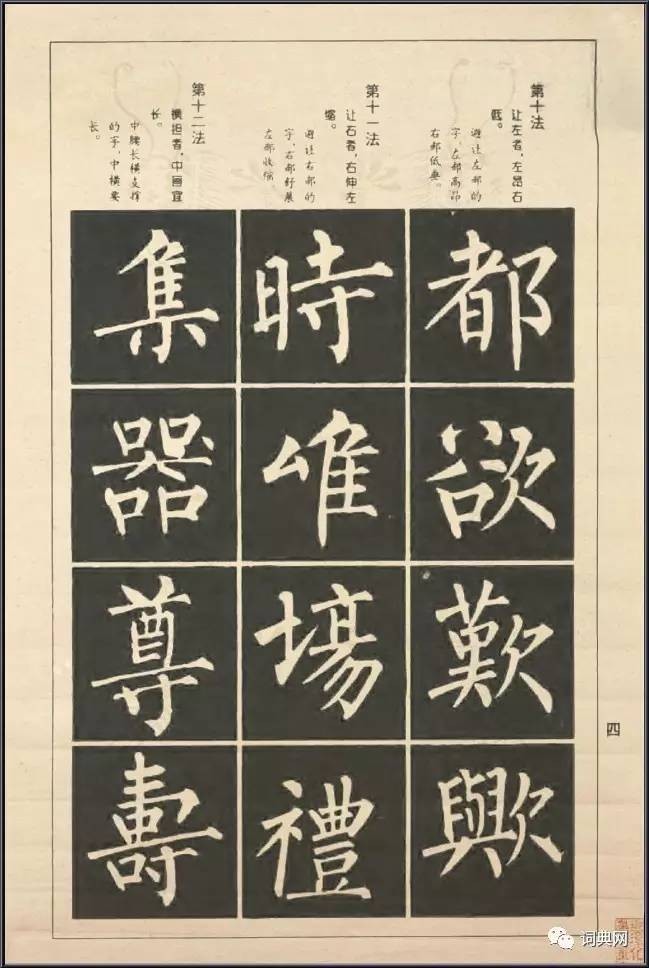 第十法
让左者，左昂右
低。
避让左部的
字，左部高昂
右部低垂。
都
欲
歎
歟
第十一法
让右者，右伸左
缩。
避让右部的
字，右部舒展
左部收缩。
時
唯
場
禮
第十二法
横担者，中画宜
长。
中腰长横支撑
的字，中横要
长。
集
器
尊
壽
四
词典网